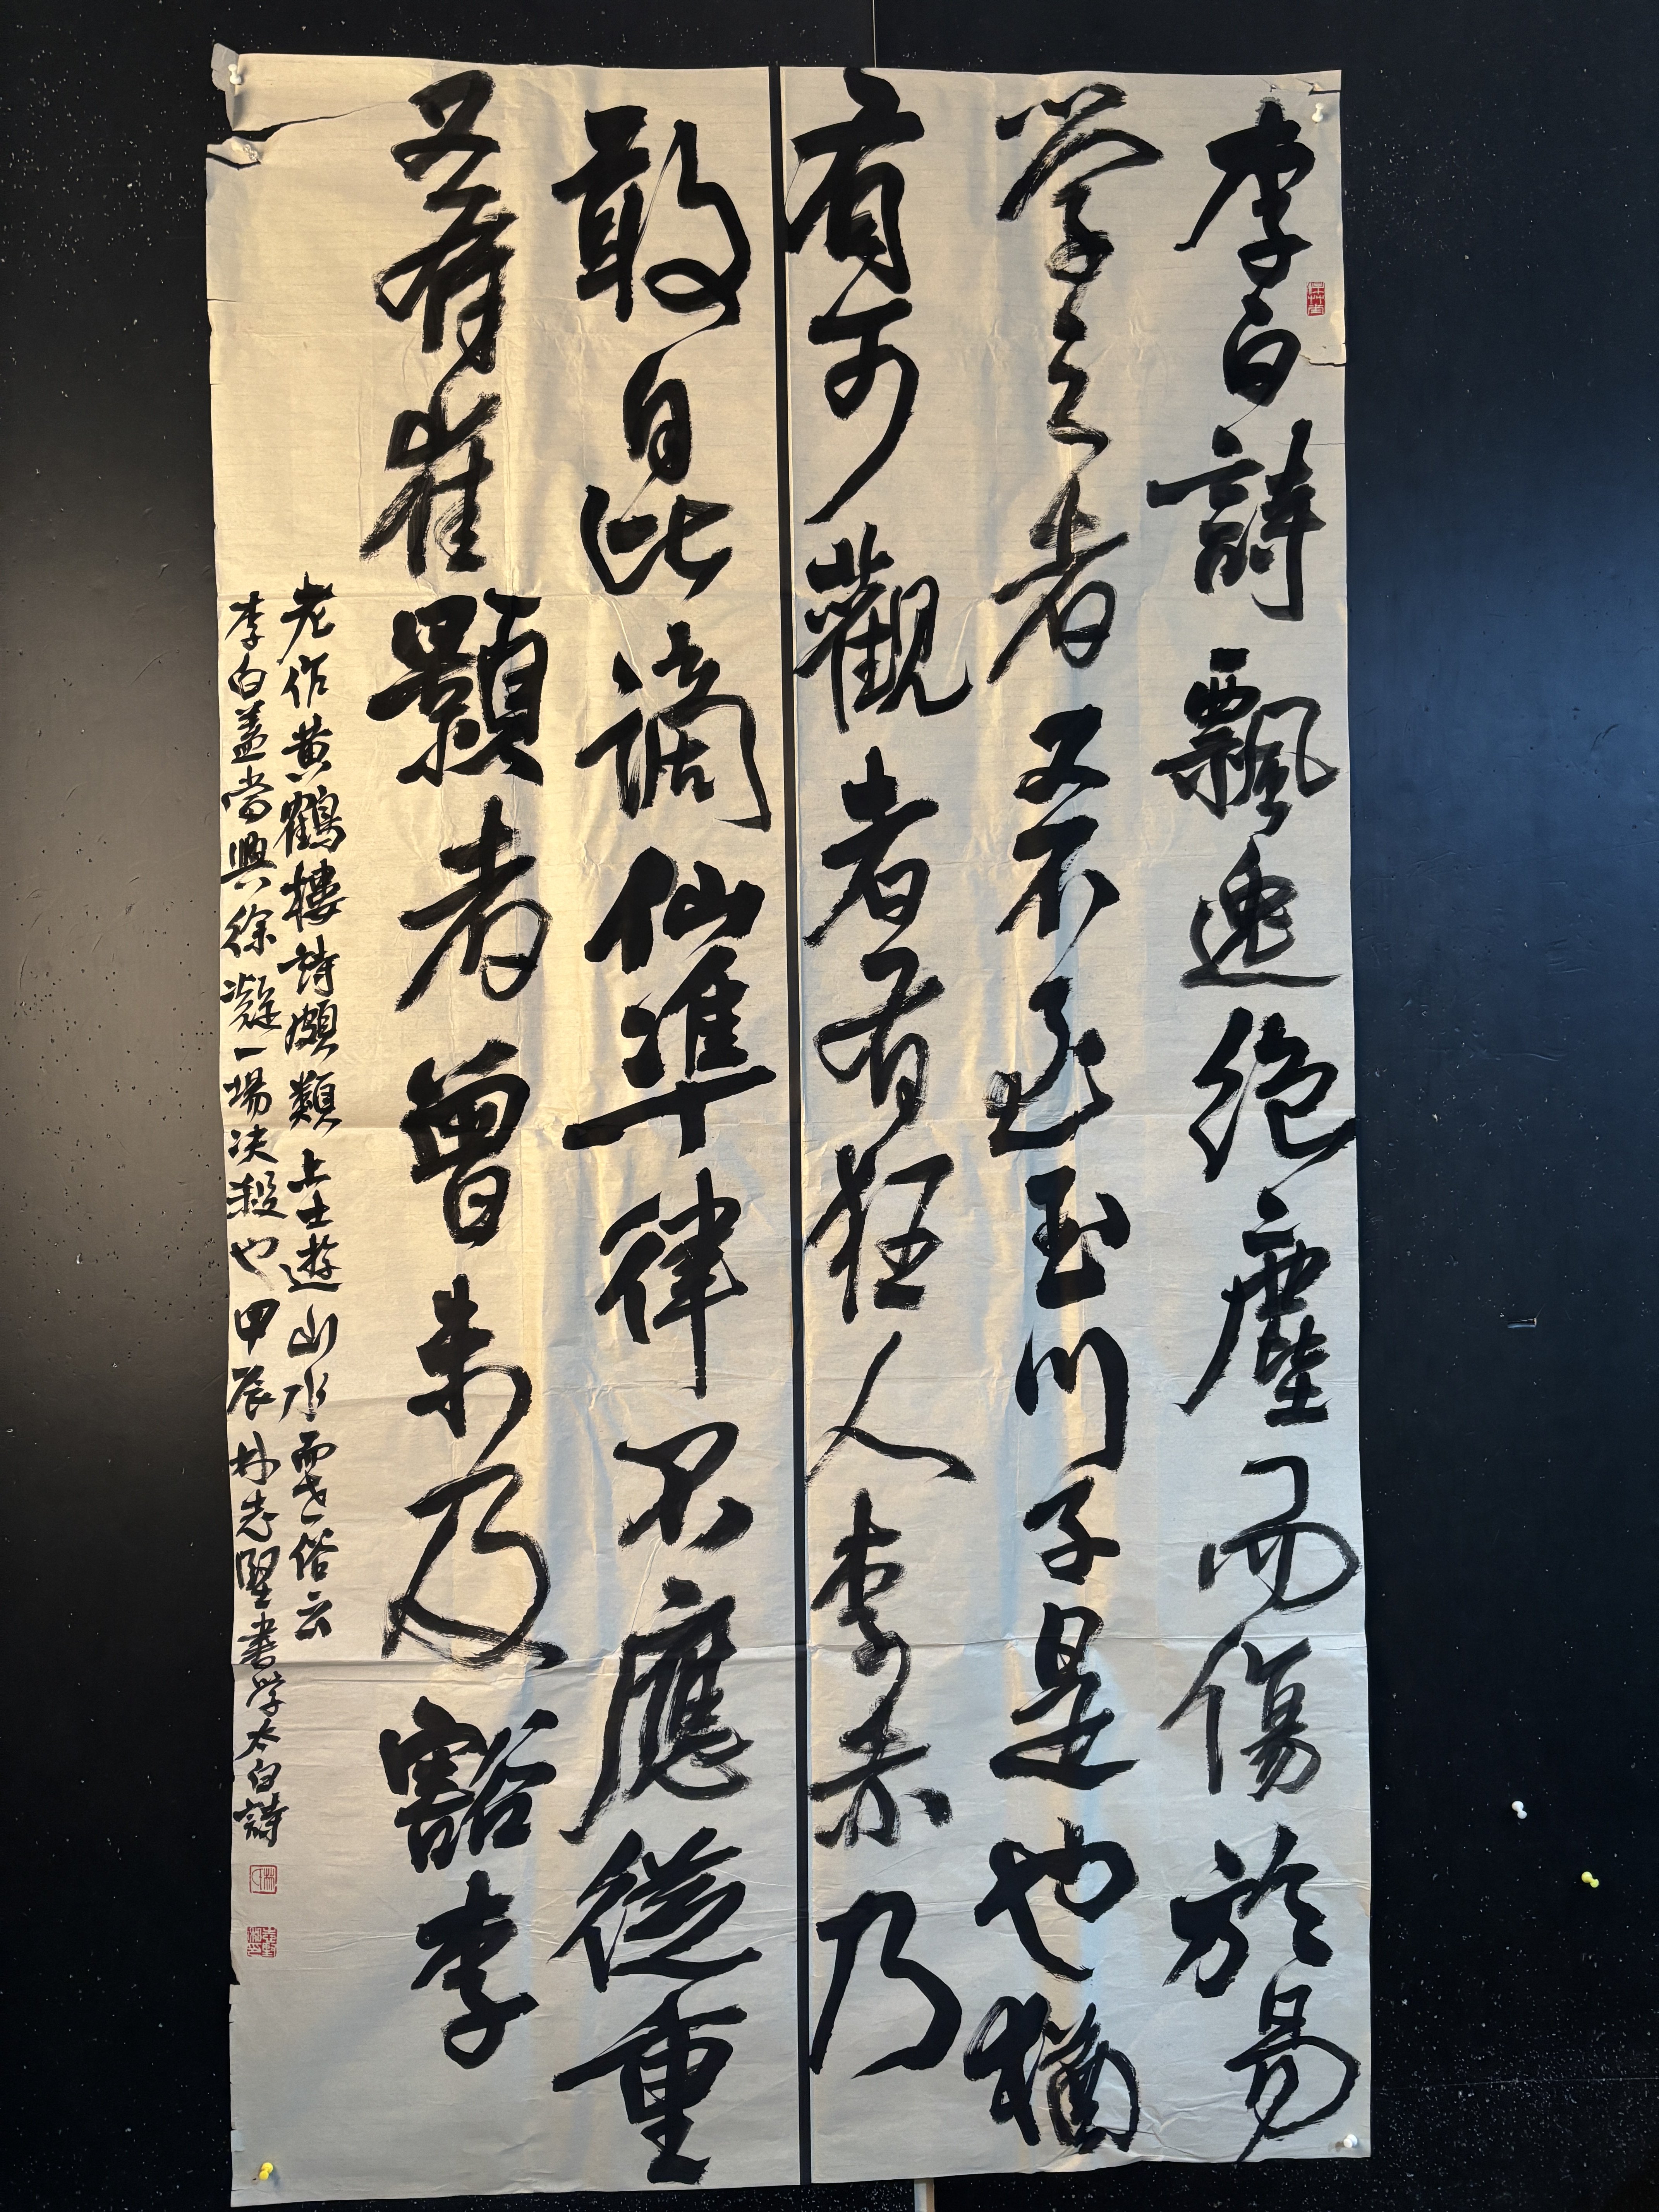 李白詩飄逸絕塵而傷於易
学之者又不至玉川子是也猶
有可觀者有狂人李赤乃
敢自比謫仙準律不應從重
又有崔顥者曾未及豁李
老作黄鶴樓詩頗類上士遊山水而世俗云
李白蓋當與徐凝一場决殺也甲辰林志堅書学太白詩